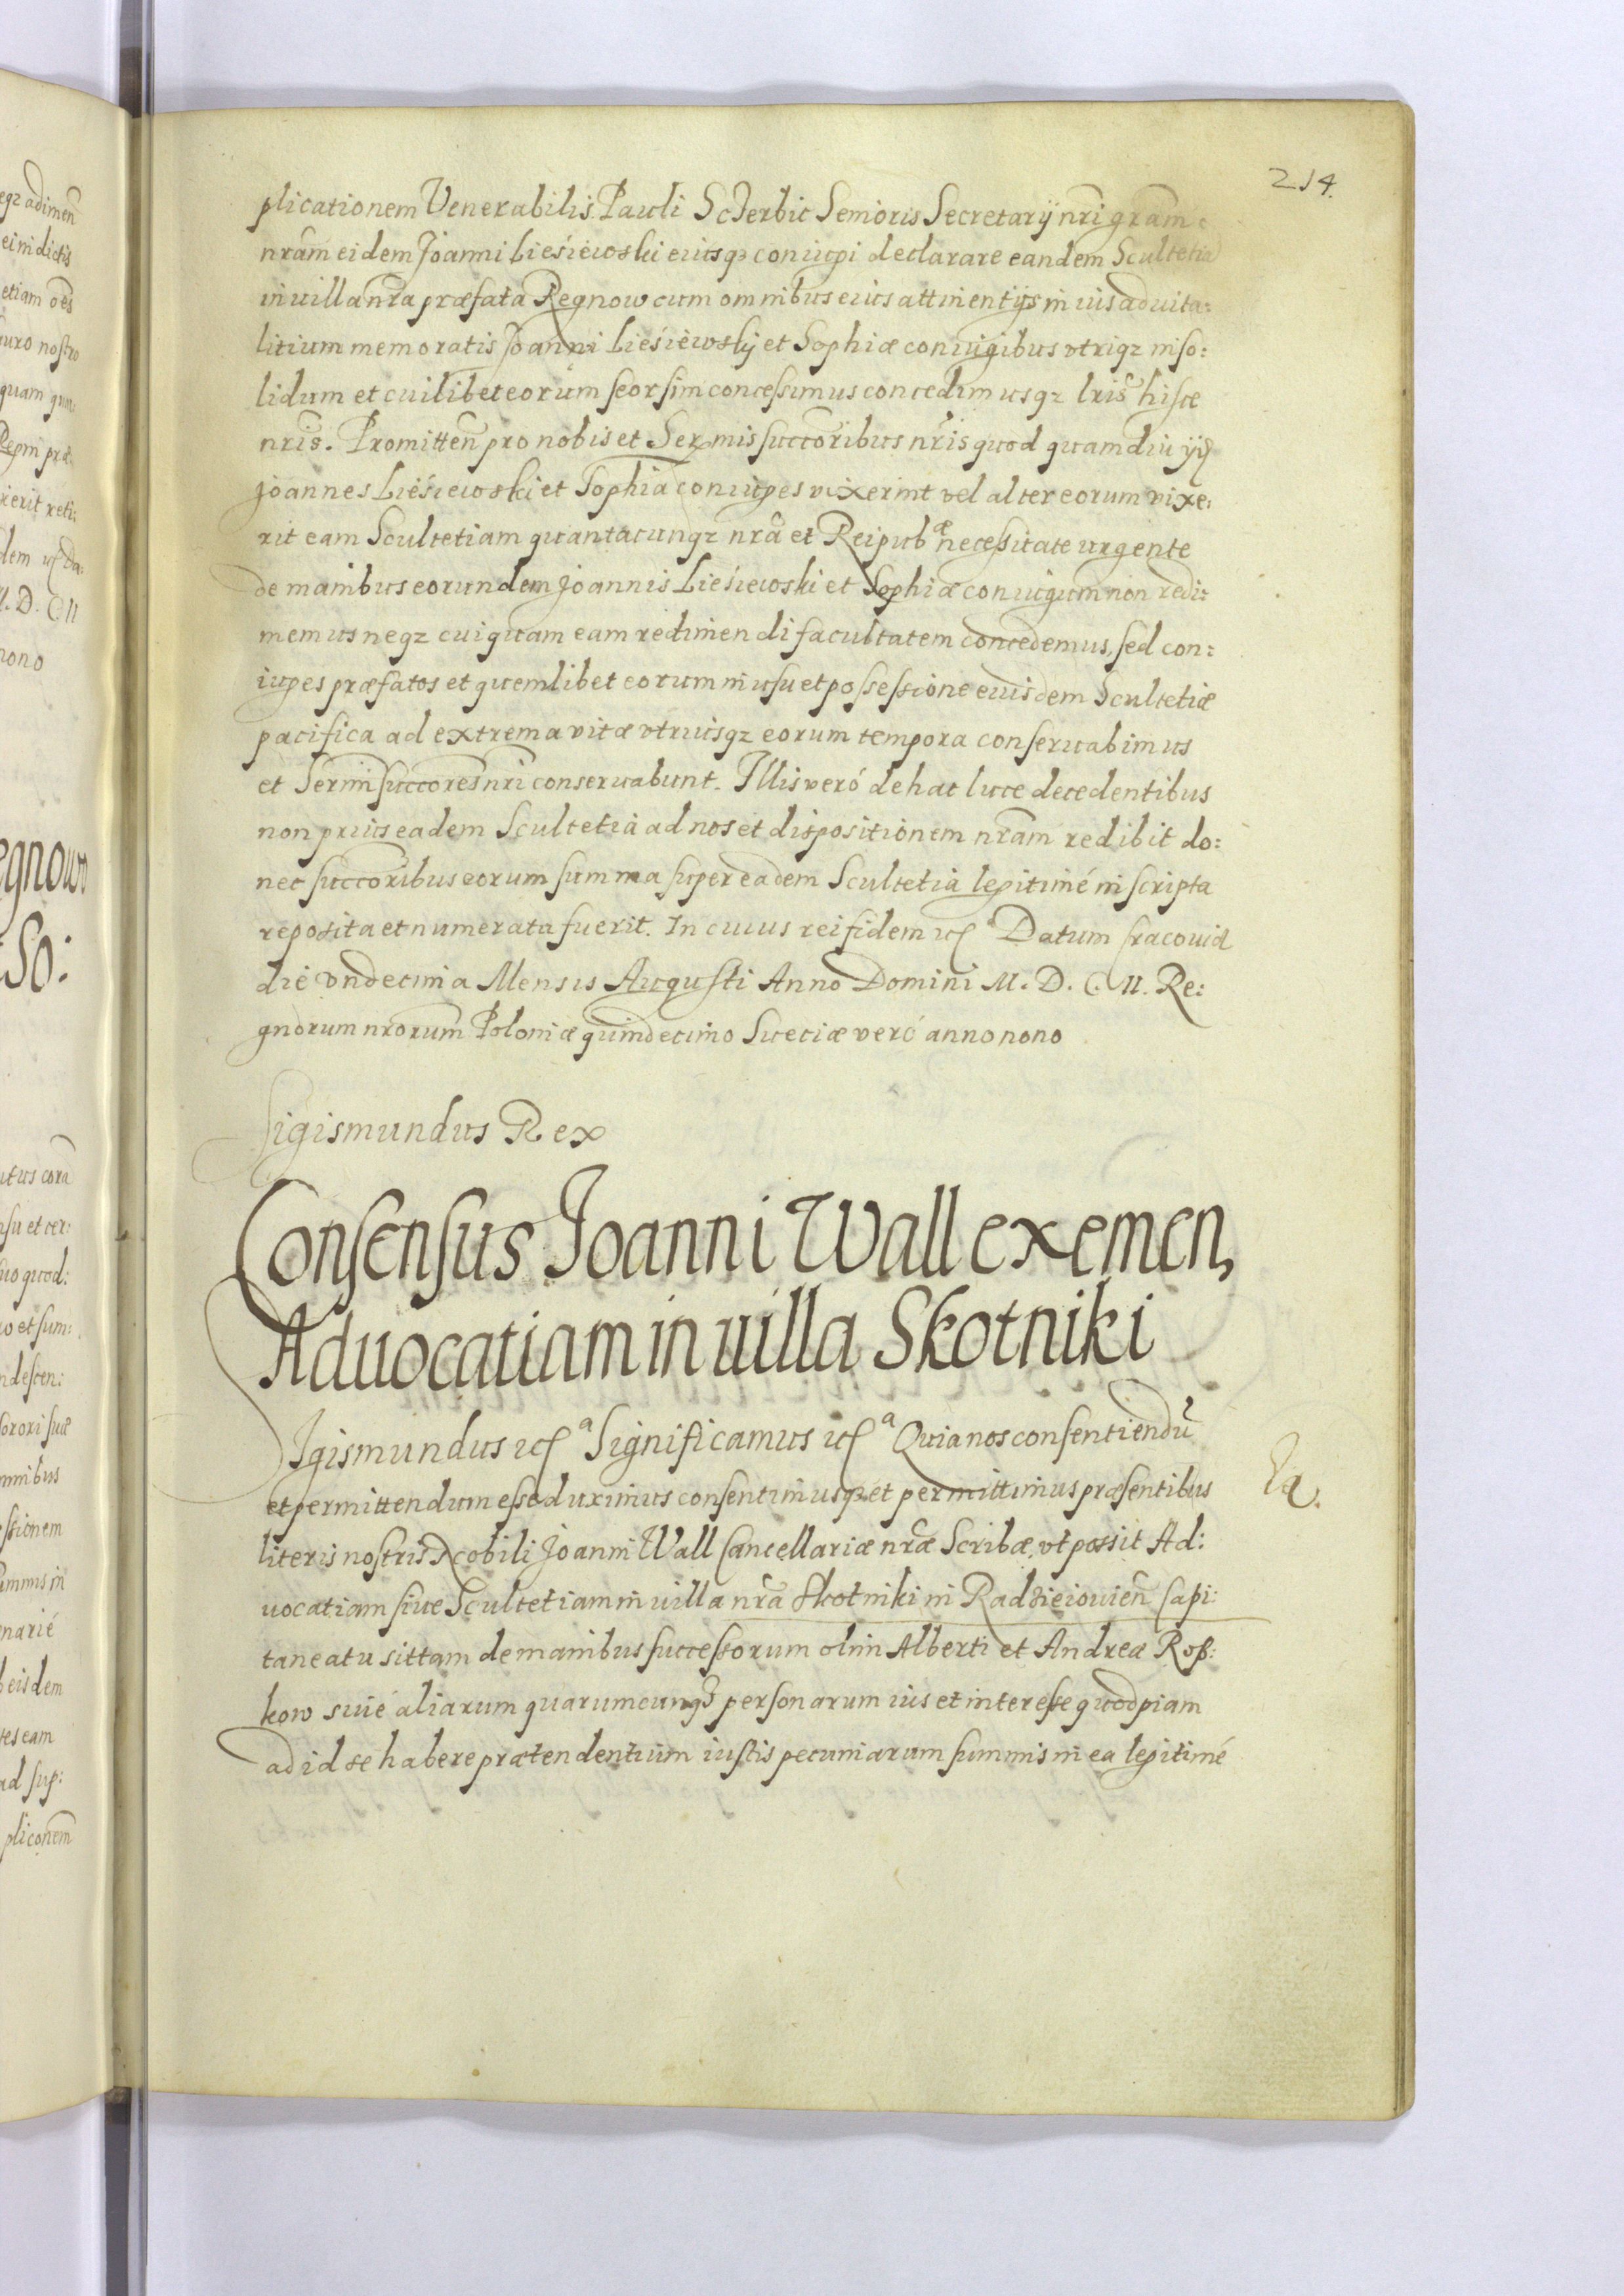 214.
plicationem Venerabilis Pauli Sczerbic Semoris Secretarÿ nri gram
nram eidem Joanni Lieśiewoski eiusqz coniugi declarare eandem Scultetia
in uilla nra præfata Regnow cum omnibus eius attinentÿs in ius aduita:
litium memoratis Joanni Lieśiewoskÿ et Sophiæ coniugibus vtriqz in so:
lidum et cuilibet eorum seorsim concessimus concedimusqz lris hisce
nris. Promitten pro nobis et Sermis succoribus nris quod quamdiu ÿ
Joannes Lieśiewoski et Sophia coniuges vixerint vel alter eorum vixe:
rit eam Scultetiam quantacunqz nra et Reipubæ necessitate urgente
de manibus eorundem Joannis Lieśiewoski et Sophiæ coniugum non redi:
memus neqz cuiquam eam redimendi facultatem concedemus, sed con:
iuges præfatos et quemlibet eorum in usu et possessione eiusdem Scultetiæ
pacifica ad extrema vitæ vtriusqz eorum tempora conseruabimus
et Sermi succores nri conseruabunt. Illis veró de hac luce decedentibus
non prius eadem Scultetia ad nos et dispositionem nram redibit do:
nec succoribus eorum summa super eadem Scultetia legitimé inscripta
reposita et numerata fuerit. In cuius rei fidem etc Datum Cracouiæ
die vndecima Mensis Augusti Anno Domini M. D. C. II. Re:
gnorum nrorum Poloniæ quindecimo Sueciæ veró anno nono
Sigismundus Rex
Consensus Joanni Wall exemen,
Aduocatiam in uilla Skotniki
Sigismundus etc a Significamus etc a Quia nos consentiendū
et permittendum esse duximus consentimusqz et permittimus præsentibus
literis nostris Nobili Joanni Wall Cancellariæ nræ Scribæ, vt possit Ad:
uocatiam siue Scultetiam in uilla nra Skotniki in Radzieiouien Capi:
taneatu sittam de manibus successorum olim Alberti et Andreæ Roß:
kow siué aliarum quarumcunqz personarum ius et interesse quodpiam
ad id se habere prætendentium iustis pecuniarum summis in ea legitimé